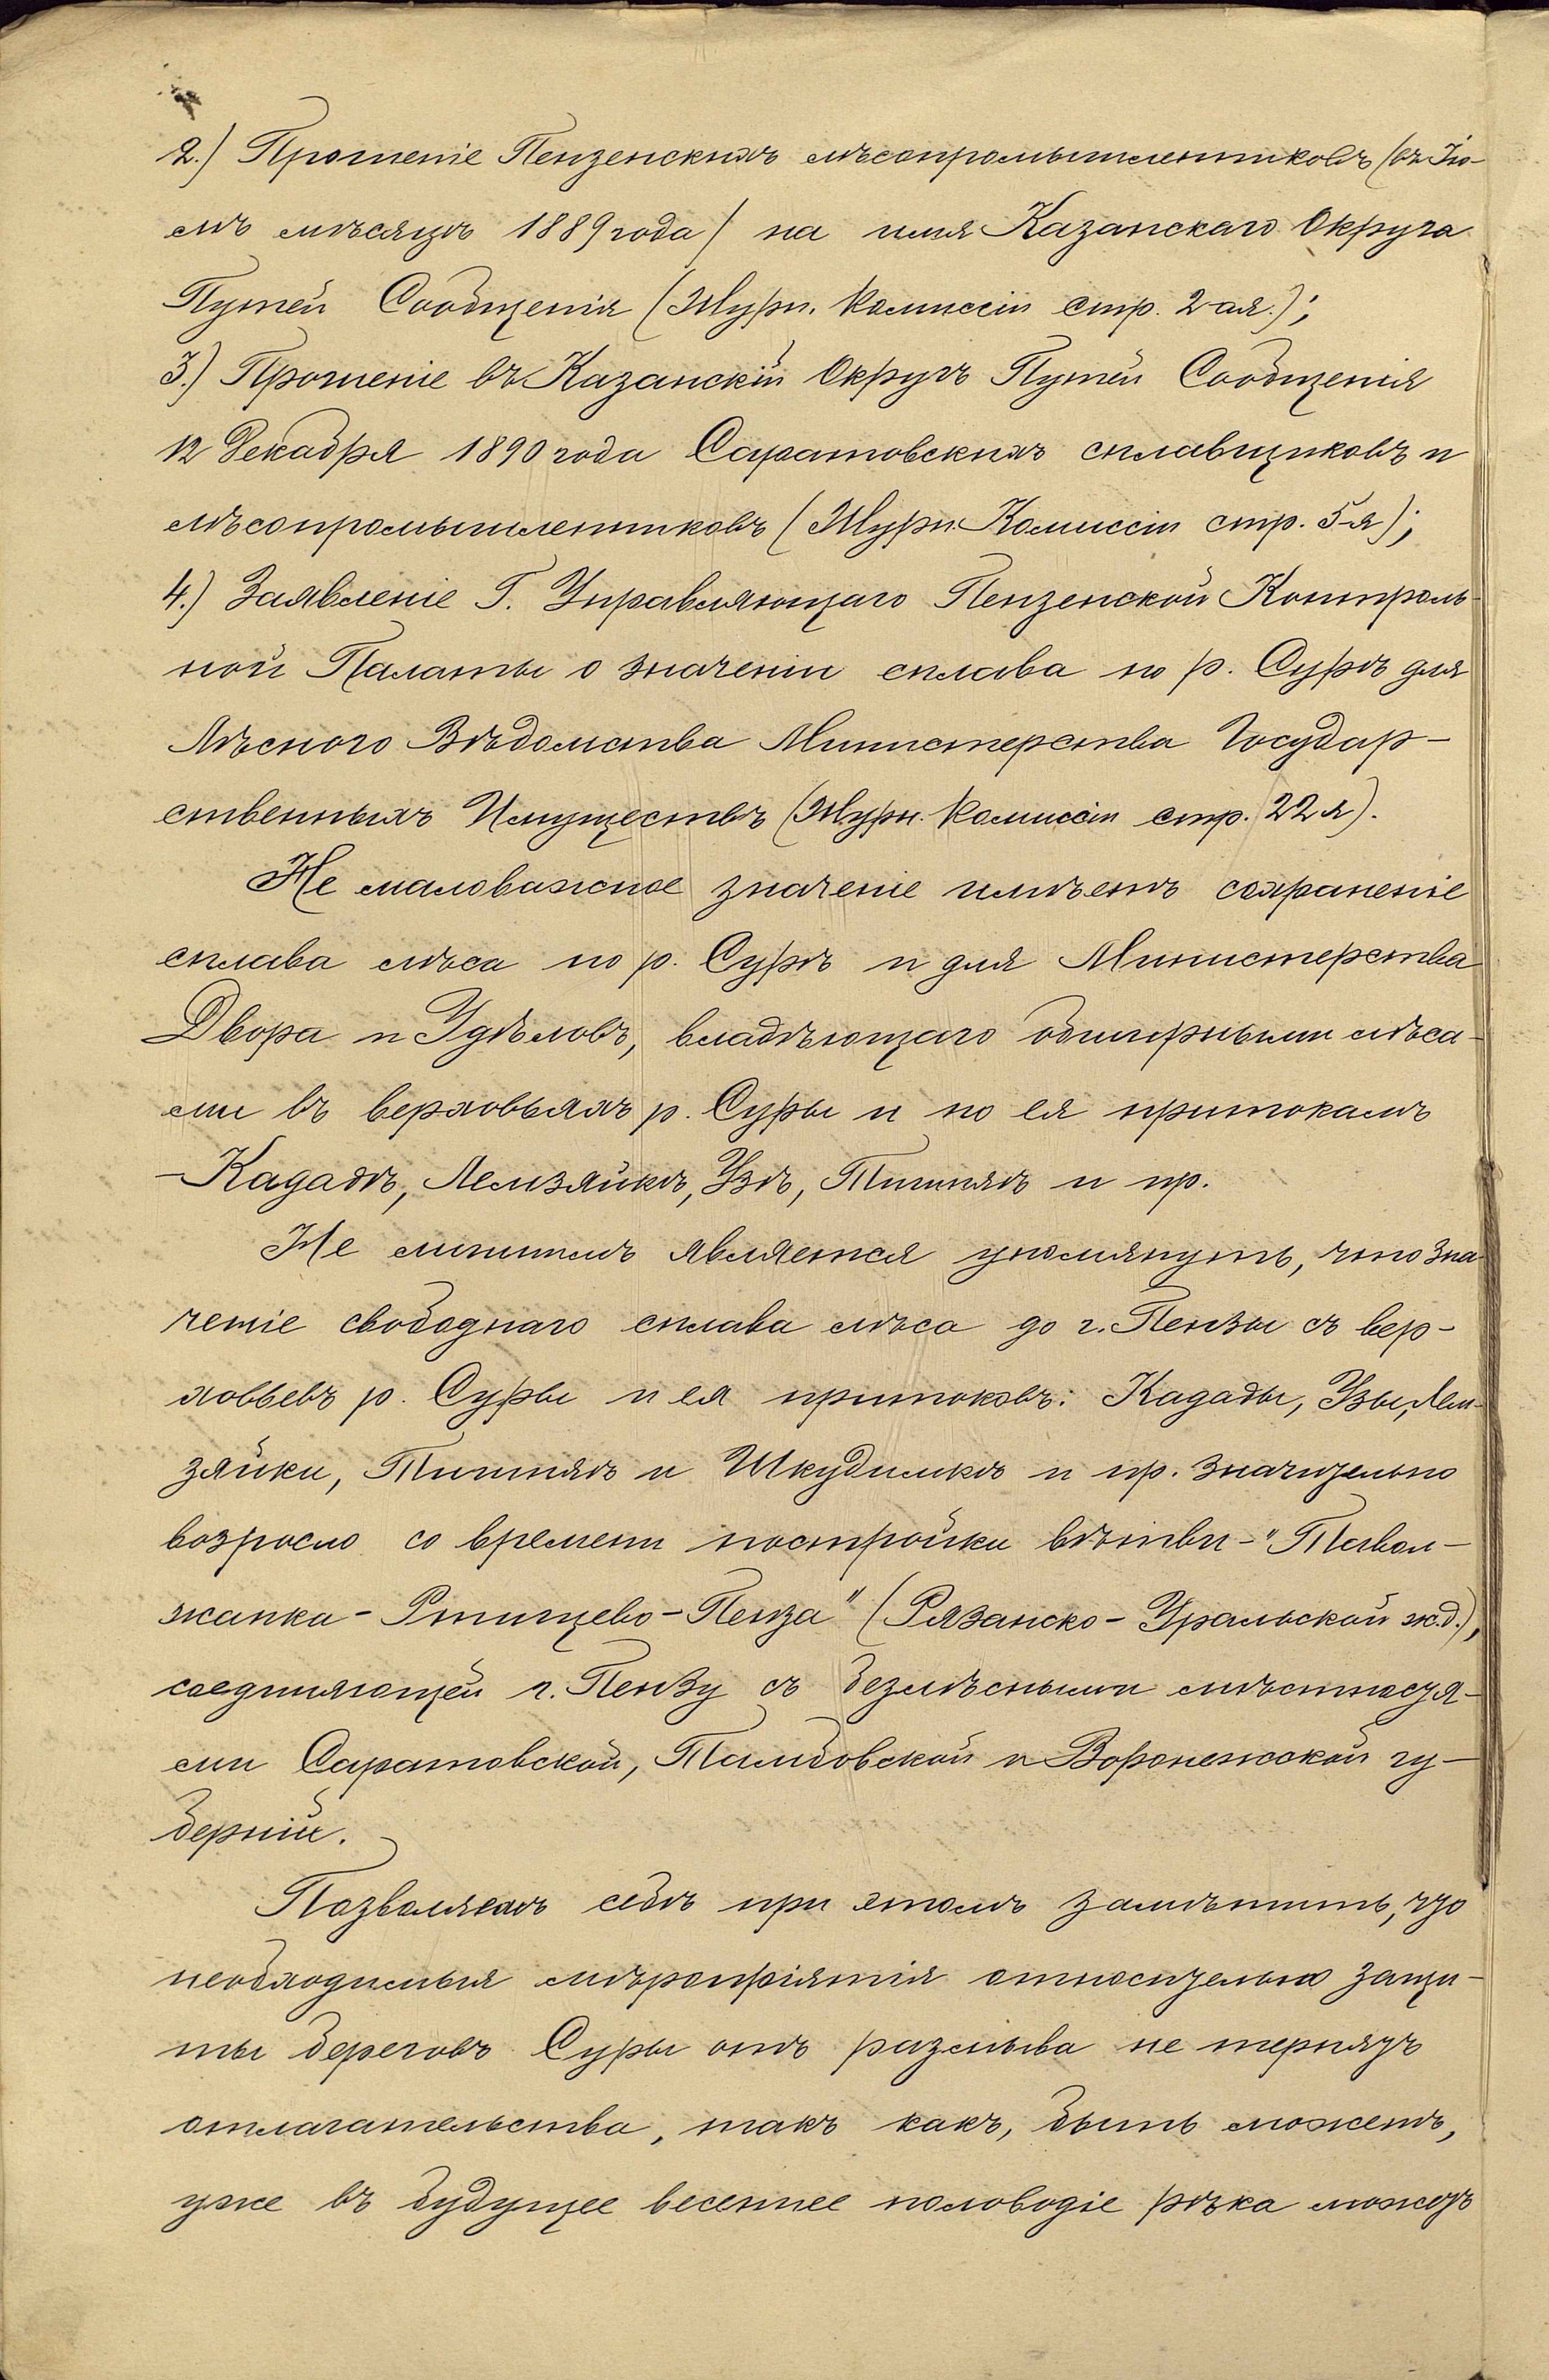 2.) Прошеніе Пензенскихъ лѣсопромышленниковъ (въ Ію-
лѣ мѣсяцѣ 1889 года) на имя Казанскаго Округа
Путей Сообщенія (Журн. Комиссіи стр. 2-ая.);
3.) Прошеніе въ Казанскій Округъ Путей Сообщенія
12 Декабря 1890 года Саратовскихъ сплавщиковъ и
лѣсопромышленниковъ (Журн. Комиссіи стр. 5-я);
4.) Заявленіе Г. Управляющаго Пензенской Контроль-
ной Палаты о значеніи сплава по р. Сурѣ для
Лѣсного Вѣдомства Министерства Государ-
ственныхъ Имуществъ (Журн. Комиссіи стр. 22 я).
Не маловажное значеніе имѣетъ сохраненіе
сплава лѣса по р. Сурѣ и для Министерства
Двора и Удѣловъ, владѣющаго обширными лѣса-
ми въ верховьяхъ р. Суры и по ея притокамъ
- Кададѣ, Лемзяйкѣ, Узѣ, Тишнярѣ и пр.
Не лишнимъ является упомянуть, что зна-
ченіе свободнаго сплава лѣса до г. Пензы съ вер-
ховьевъ р. Суры и ея притоковъ: Кадады, Узы, Лем-
зяйки, Тишнярѣ и Шкудимкѣ и пр. значительно
возросло со времени постройки вѣтви - "Тавол-
жанка - Ртищево - Пенза" (Рязанско - Уральской ж.д.),
соединяющей г. Пензу съ безлѣсными мѣстностя-
ми Саратовской, Тамбовской и Воронежской гу-
берній.
Позволяемъ себѣ при этомъ замѣтить, что
необходимыя мѣропріятія относительно защи-
ты береговъ Суры отъ размыва не терпятъ
отлагательства, такъ какъ, быть можетъ,
уже въ будущее весеннее половодіе рѣка можетъ